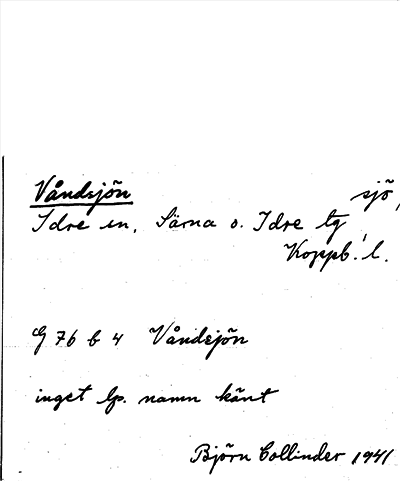 Våndsjön sjö,
Idre sn, Särna o. Idre tg
Koppb. l.
G 76 b 4 Våndsjön
inget lp. namn känt
Björn Collinder 1941